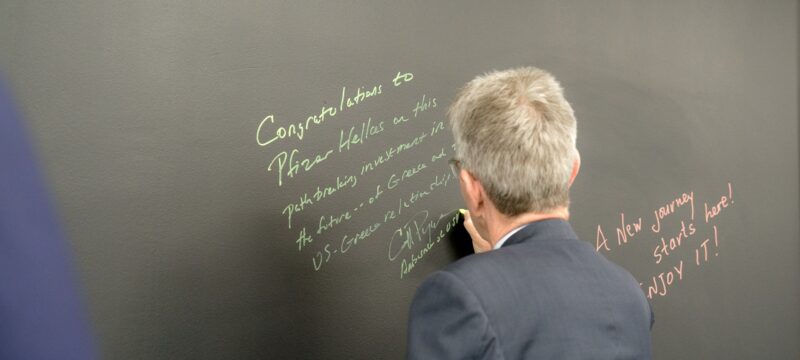 Congratulations to
Pfizer Hellas on this
pathbreaking investment in
the future -- of Greece and
US-Greece relationship
A New journey
starts here!
ENJOY IT!